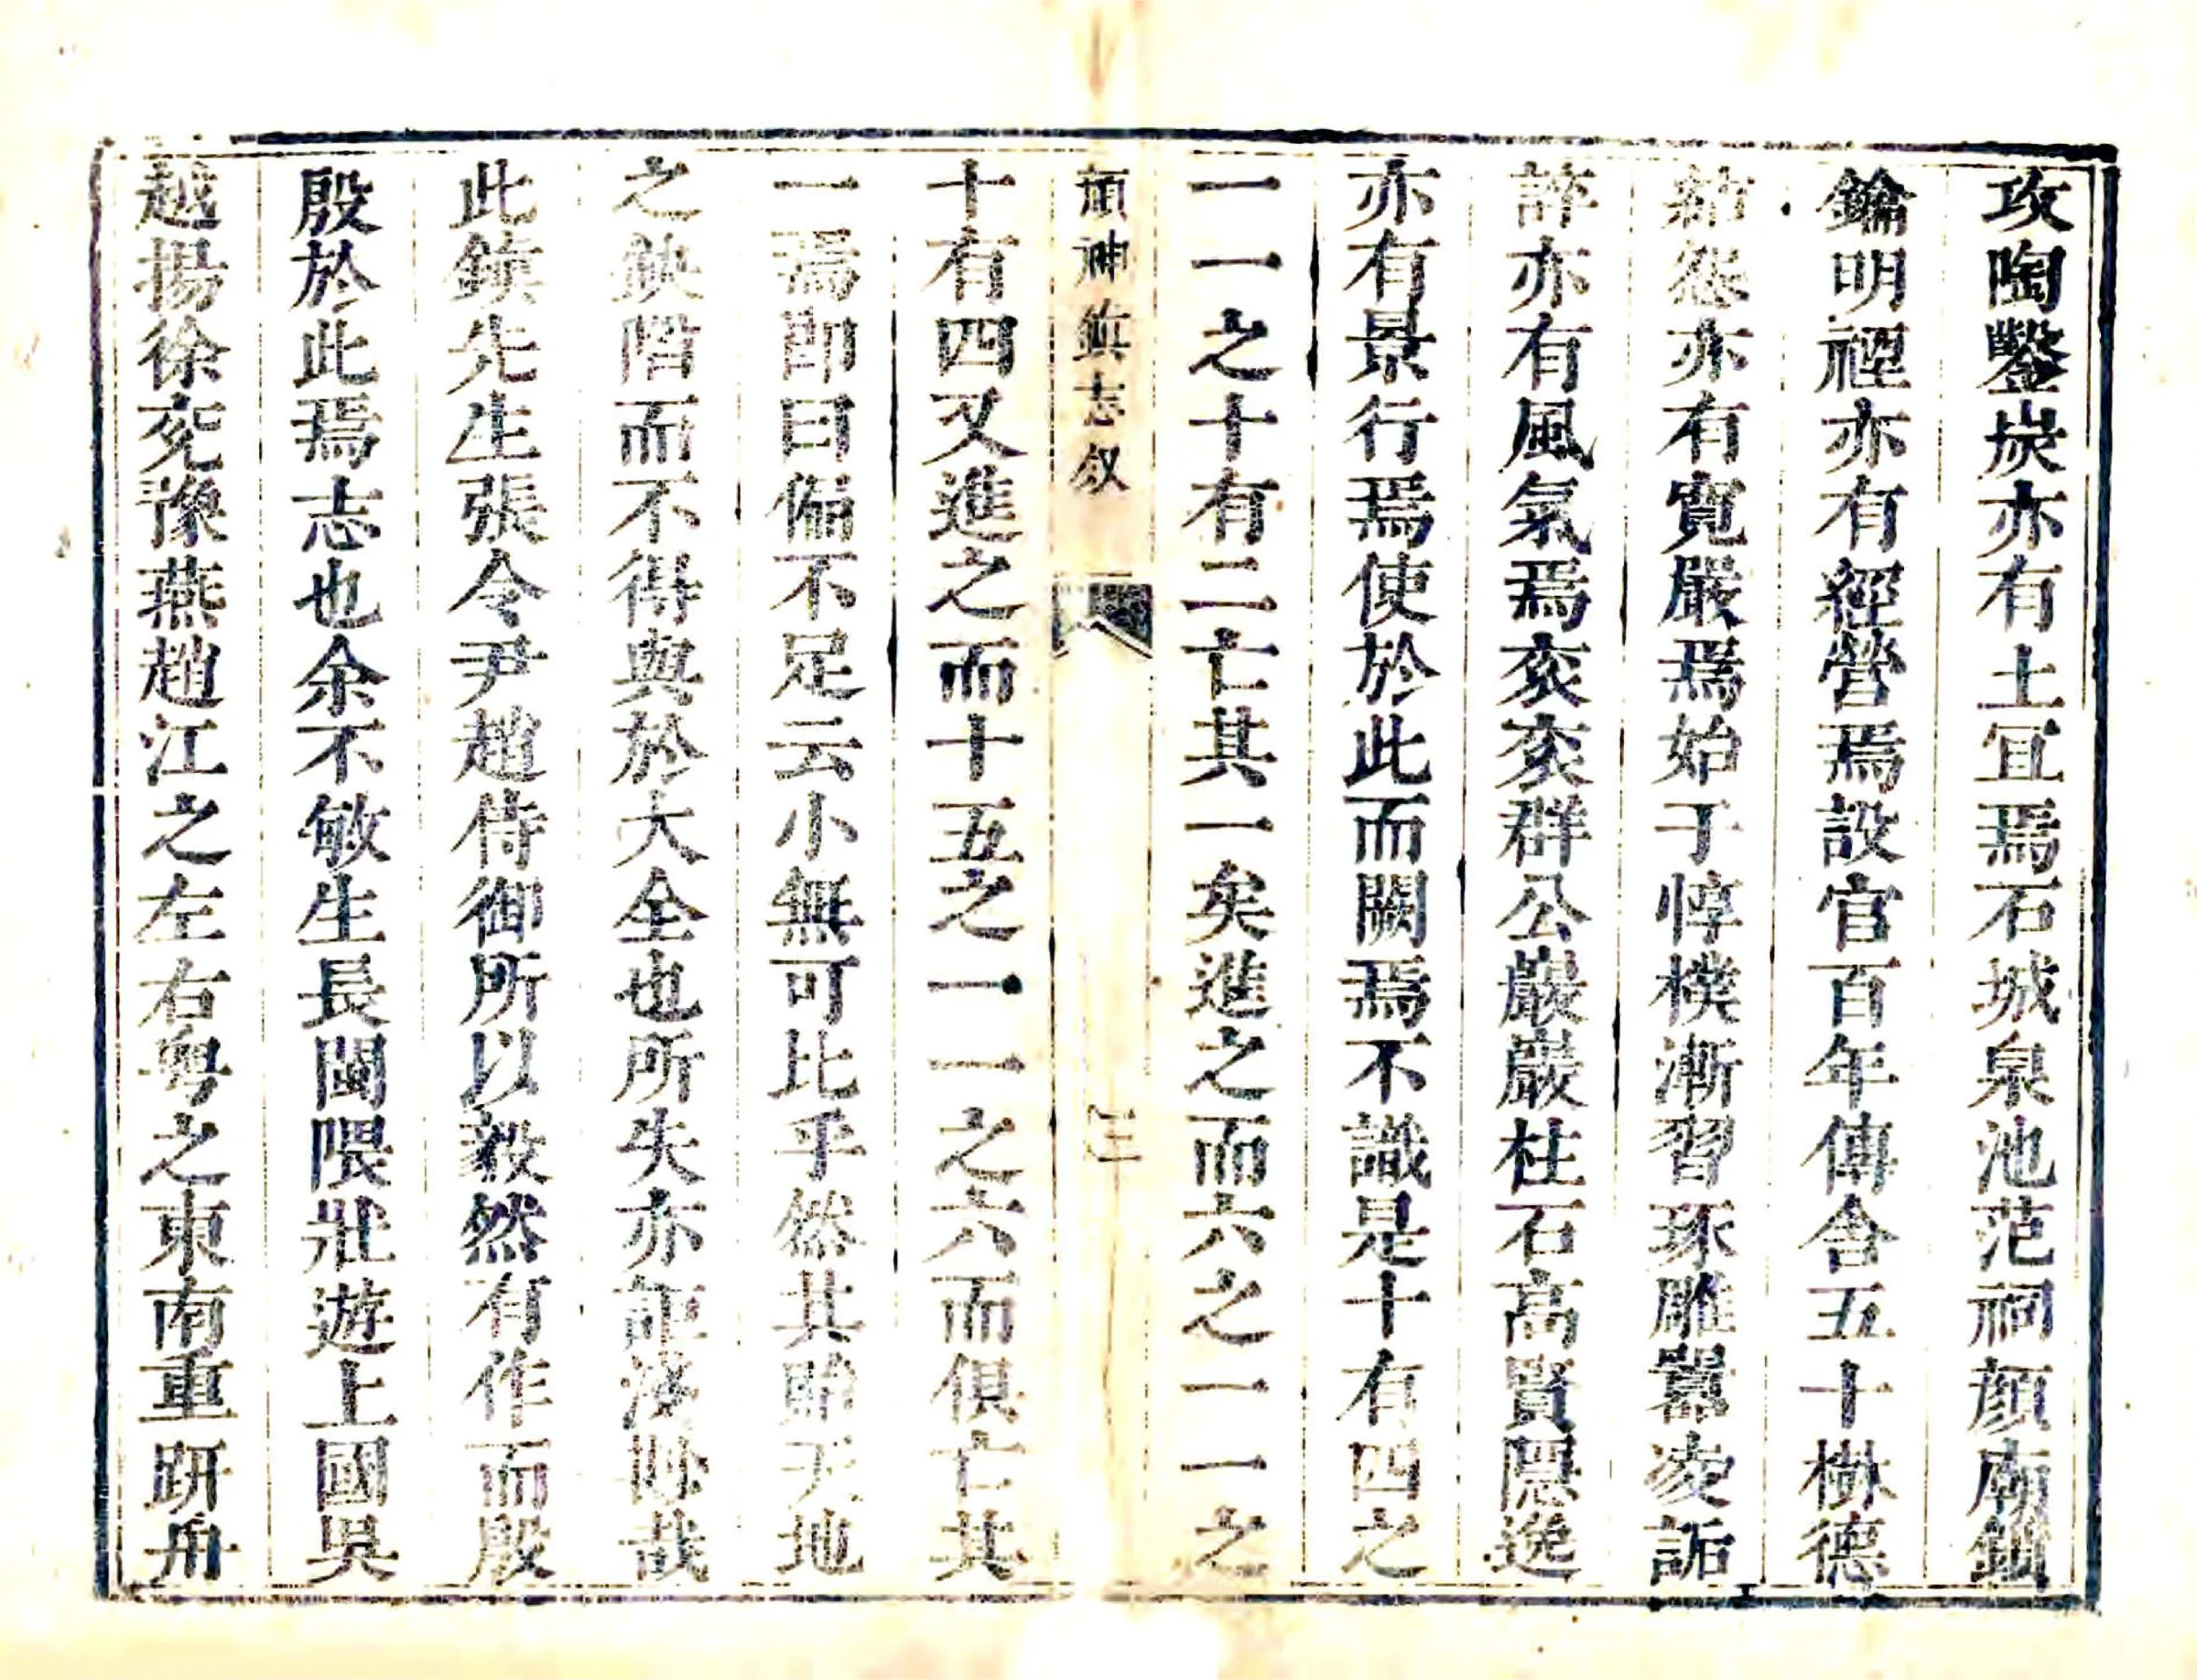 攻陶鑿炭亦有土宜焉石城泉池范祠顔廟鎖
鑰明禋亦有經營焉設官百年傳舍五十樹德
結怨亦有寛嚴焉始于惇樸漸習琢雕囂凌詬
誶亦有風氣焉奕奕群公巖巖柱石高賢隱逸
亦有景行焉使於此而闕焉不識是十有四之
一一之十有二亡其一矣進之而六之一一之
顔神鎮志叙
三
十有四又進之而十五之一一之六而俱亡其
一焉卽曰偏不足云小無可比乎然其貽天地
之缺陷而不得與於大全也所失亦詎淺尠哉
此鎮先生張令尹趙侍御所以毅然有作而殷
殷於此焉志也余不敏生長閩隈壯遊上國吳
越揚徐兖豫燕趙江之左右粤之東南重趼舟